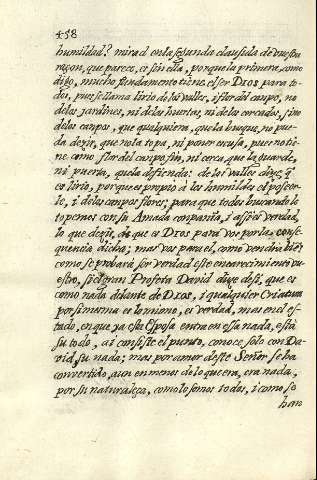 458
humildad? mirad en la segunda clausula de vuestra
raçon, que parece, èi sin ella, porque la primera, como
digo, mucho fundamento tiene, el ser Dios para to-
dos, pues se llama lirio de los valles, i flor del campo, no
de los jardines, ni de las huertas, ni de los cercados, sino
de los campos, que qualquiera, que la busque, no pue-
da dezir, que no la topa, ni poner escusa, pues no tie-
ne como flor del campo fin, ni cerca que la guarde,
ni puerta, que la defienda: de los valles dize, q̃
es lirio, porque es propio à los humildes el poseer-
le, i de los campos flores; para que todos buscando lo
topemos con su Amada conpania, i assi es verdad,
lo que dezis, de que es Dios para vos por la conse-
quencia dicha; mas vos para el, como vendria bien
como se probarà ser verdad este encarecimiento vu-
estro, si el gran Profeta David dize de si, que es
como nada delante de Dios, i qualquier Criatura
por si misma es lo mismo, es verdad, mas en el es-
tado, en que ya esta Esposa entra en esta nada, està
su todo, ai consiste el punto, conoce solo con Da-
vid, su nada; mas por amor deste Señor se ha
convertido, aun en menos de lo que era, era nada,
por su naturaleça, como lo somos todos, i como se
han